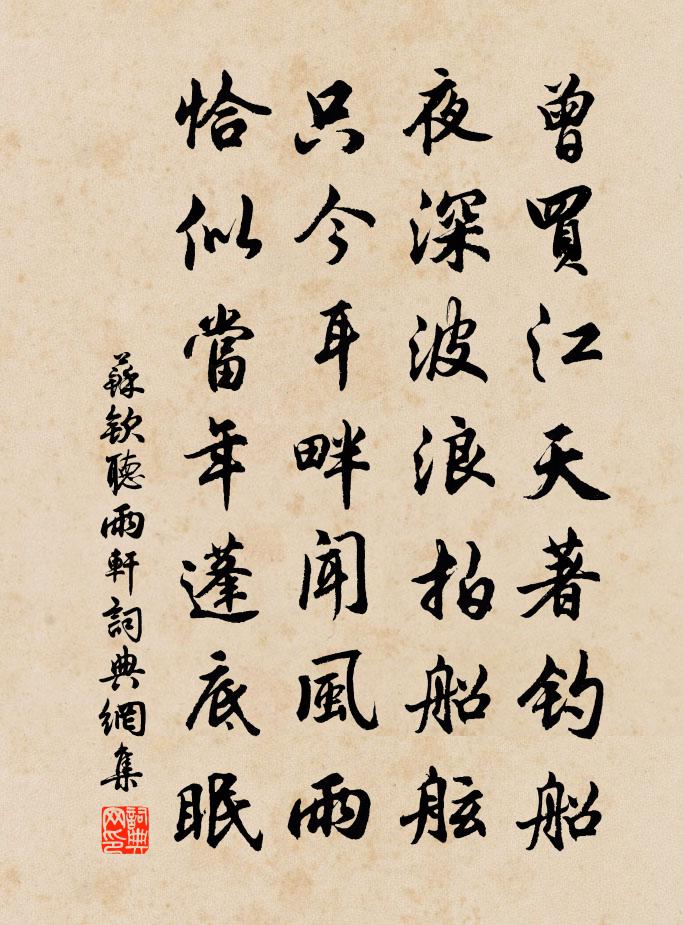 曾買江天著釣船
夜深波浪拍船舷
只今耳畔聞風雨
恰似當年蓬底眠
蘇欽聽雨軒詞典網集
詞典網印